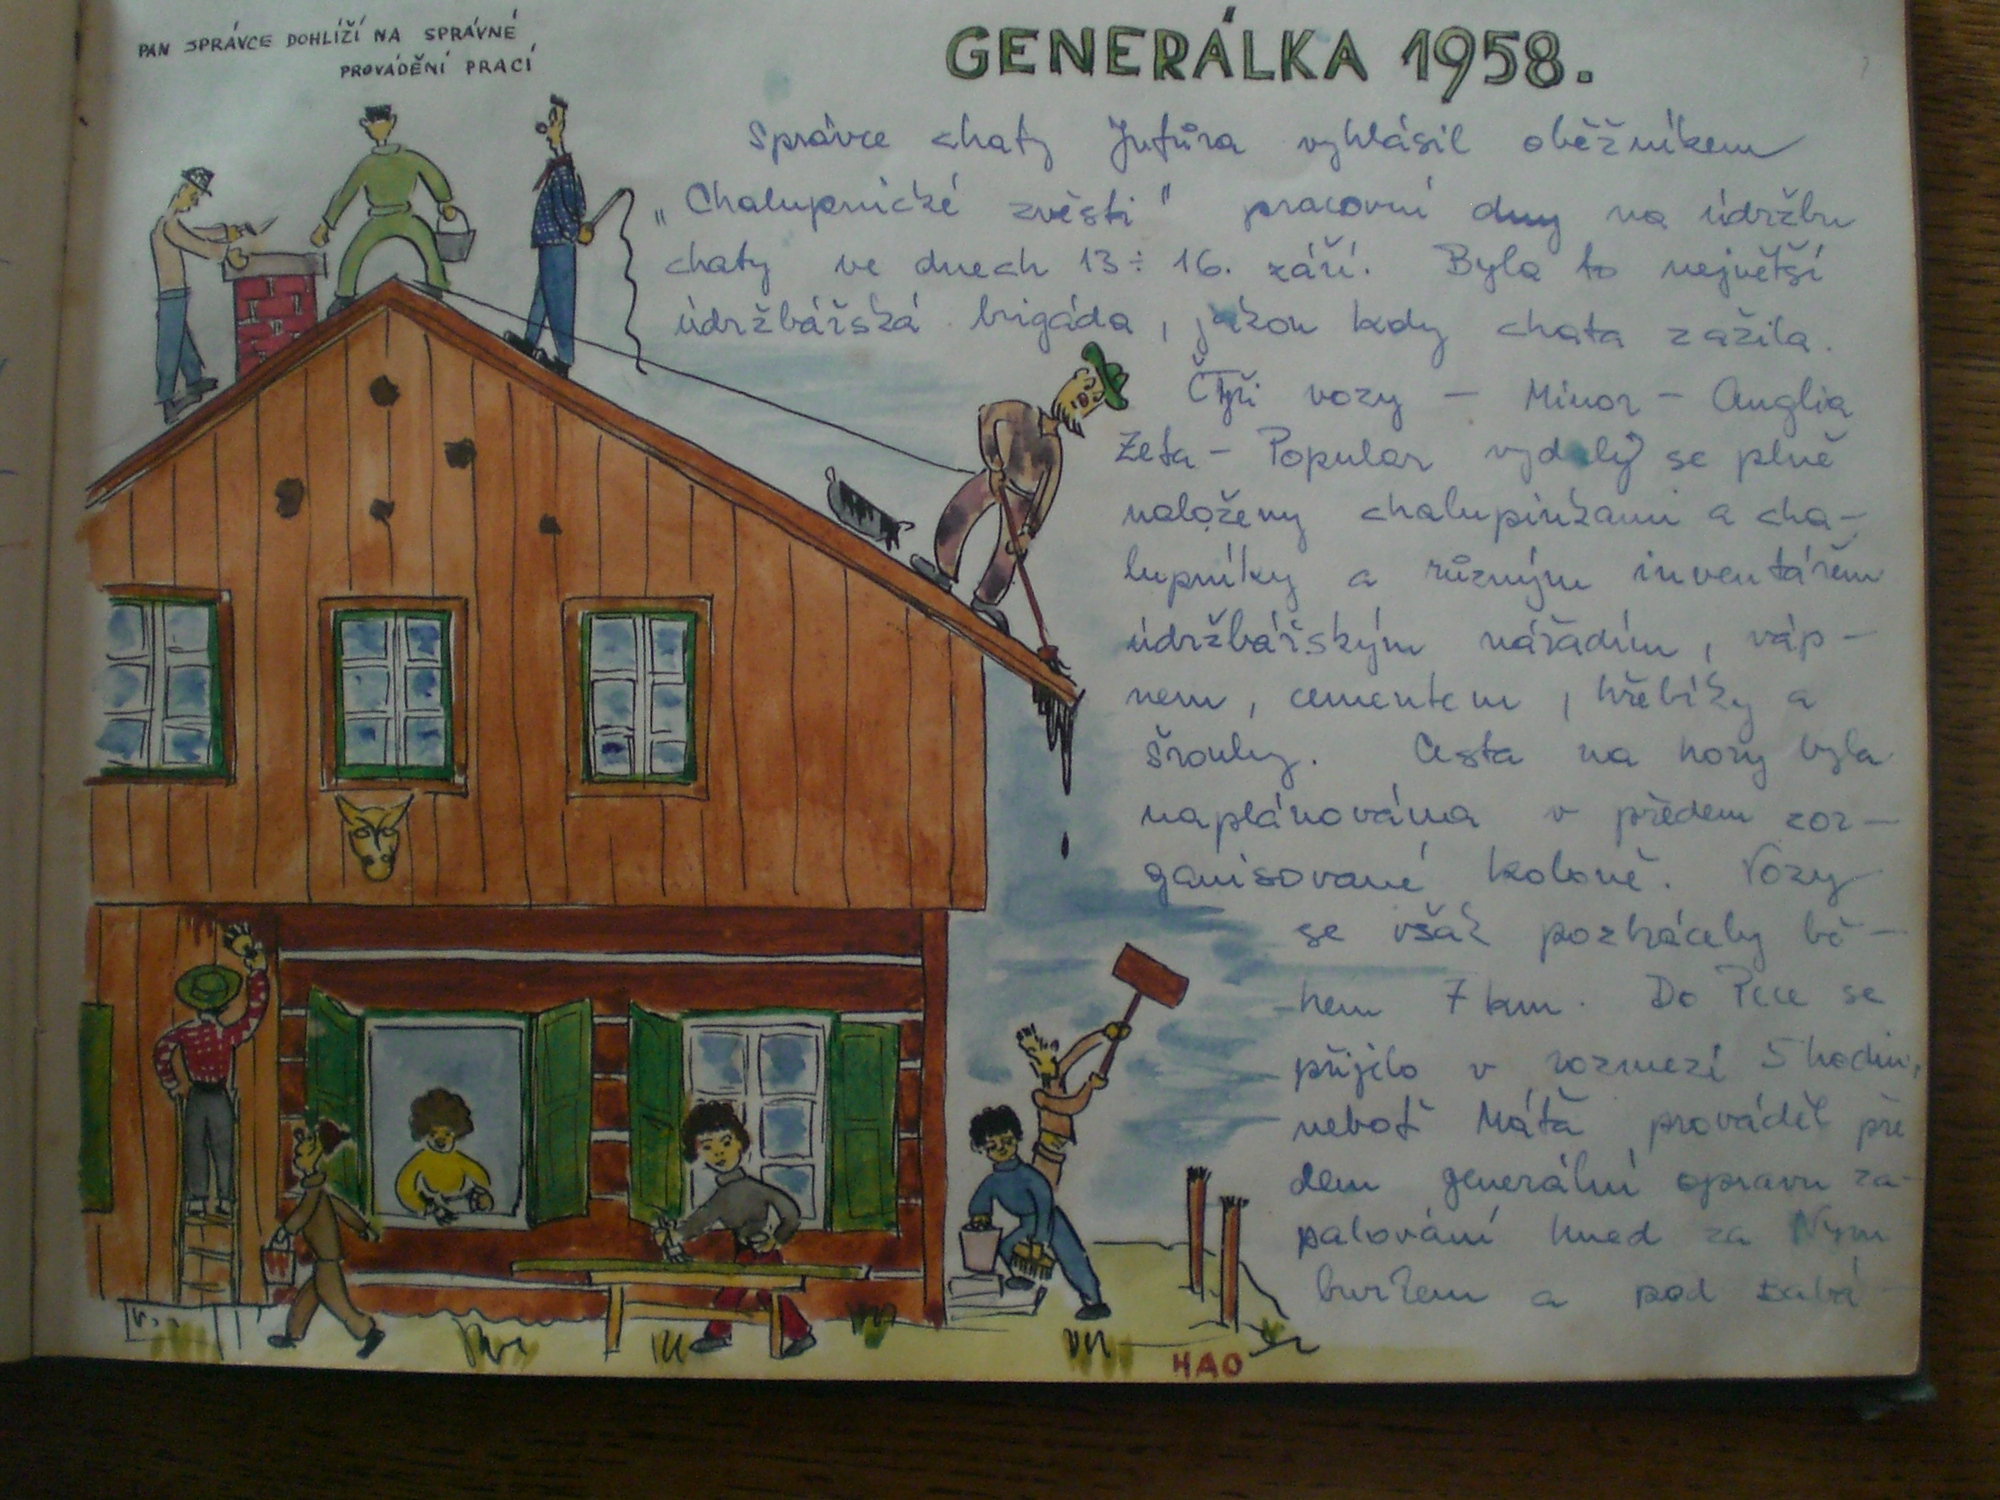 PAN SPRÁVCE DOHLÍŽÍ NA SPRÁVNÉ
PROVÁDĚNÍ PRACÍ
GENERÁLKA 1958.
Správce chaty vyhlásil oběžníkem
„Chalupnické zvěsti" pracovní dny na údržbu
chaty ve dnech 13÷16. září. Byla to největší
údržbářská brigáda, jakou kdy chata zažila.
Čtyři vozy — Minor — Anglia
Zeta — Popular vydaly se plně
naloženy chalupinkami a cha-
lupníky a různým inventářem
údržbářským nářadím, váp-
nem, cementem, hřebíky a
šrouby. Cesta na hory byla
naplánována v předem zor-
ganisované koloně. Vozy
se však poztrácely bě-
hem 7 km. Do Pece se
přijelo v rozmezí 5 hodin,
neboť Máťa prováděl pře
dem generální opravu za-
palování hned za Nym
burkem a pod
HAO